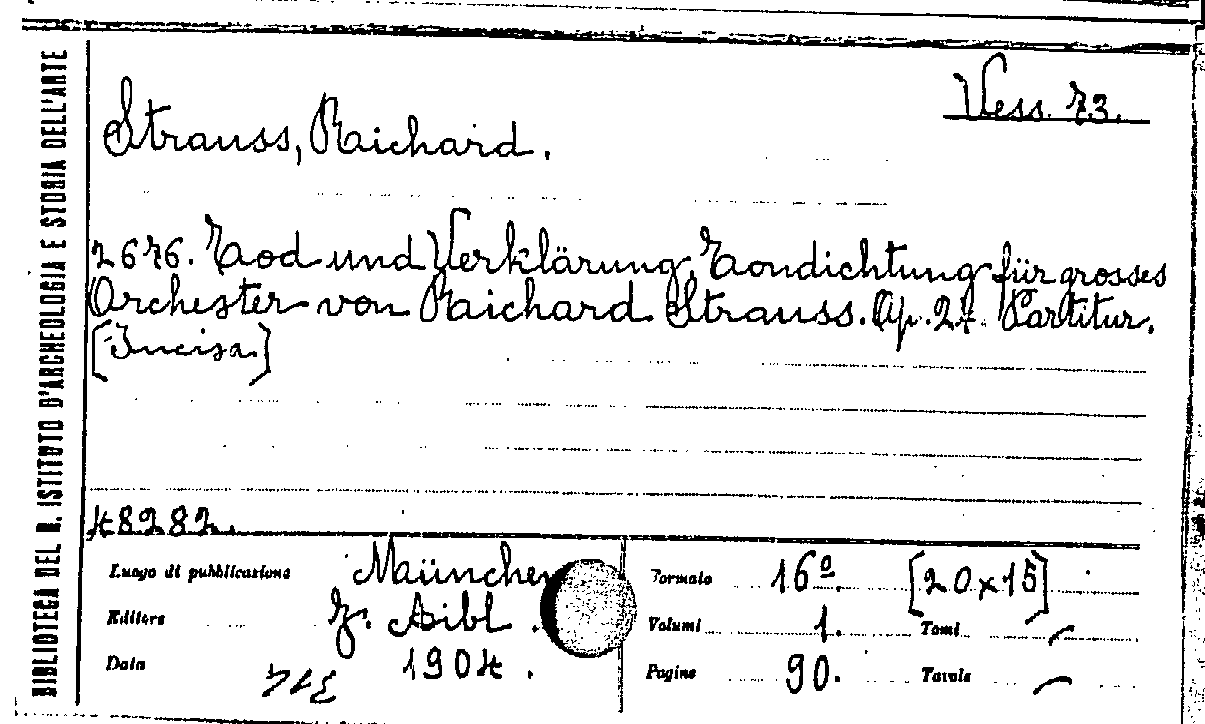 BIBLIOTECA DEL R. ISTITUTO D'ARCHEOLOGIA E STORIA DELL'ARTE
Vess. 73.
Strauss, Richard.
2676. Tod und Verklärung, Tondichtung für grosses
Orchester von Richard Strauss. Op. 24. Partitur.
[Incisa.]
48282.
Luogo di pubblicazione München
Editore J. Aibl.
Data 1904.
Formato 16º. [20x15]
Volumi 1. Tomi –
Pagine 90. Tavole –